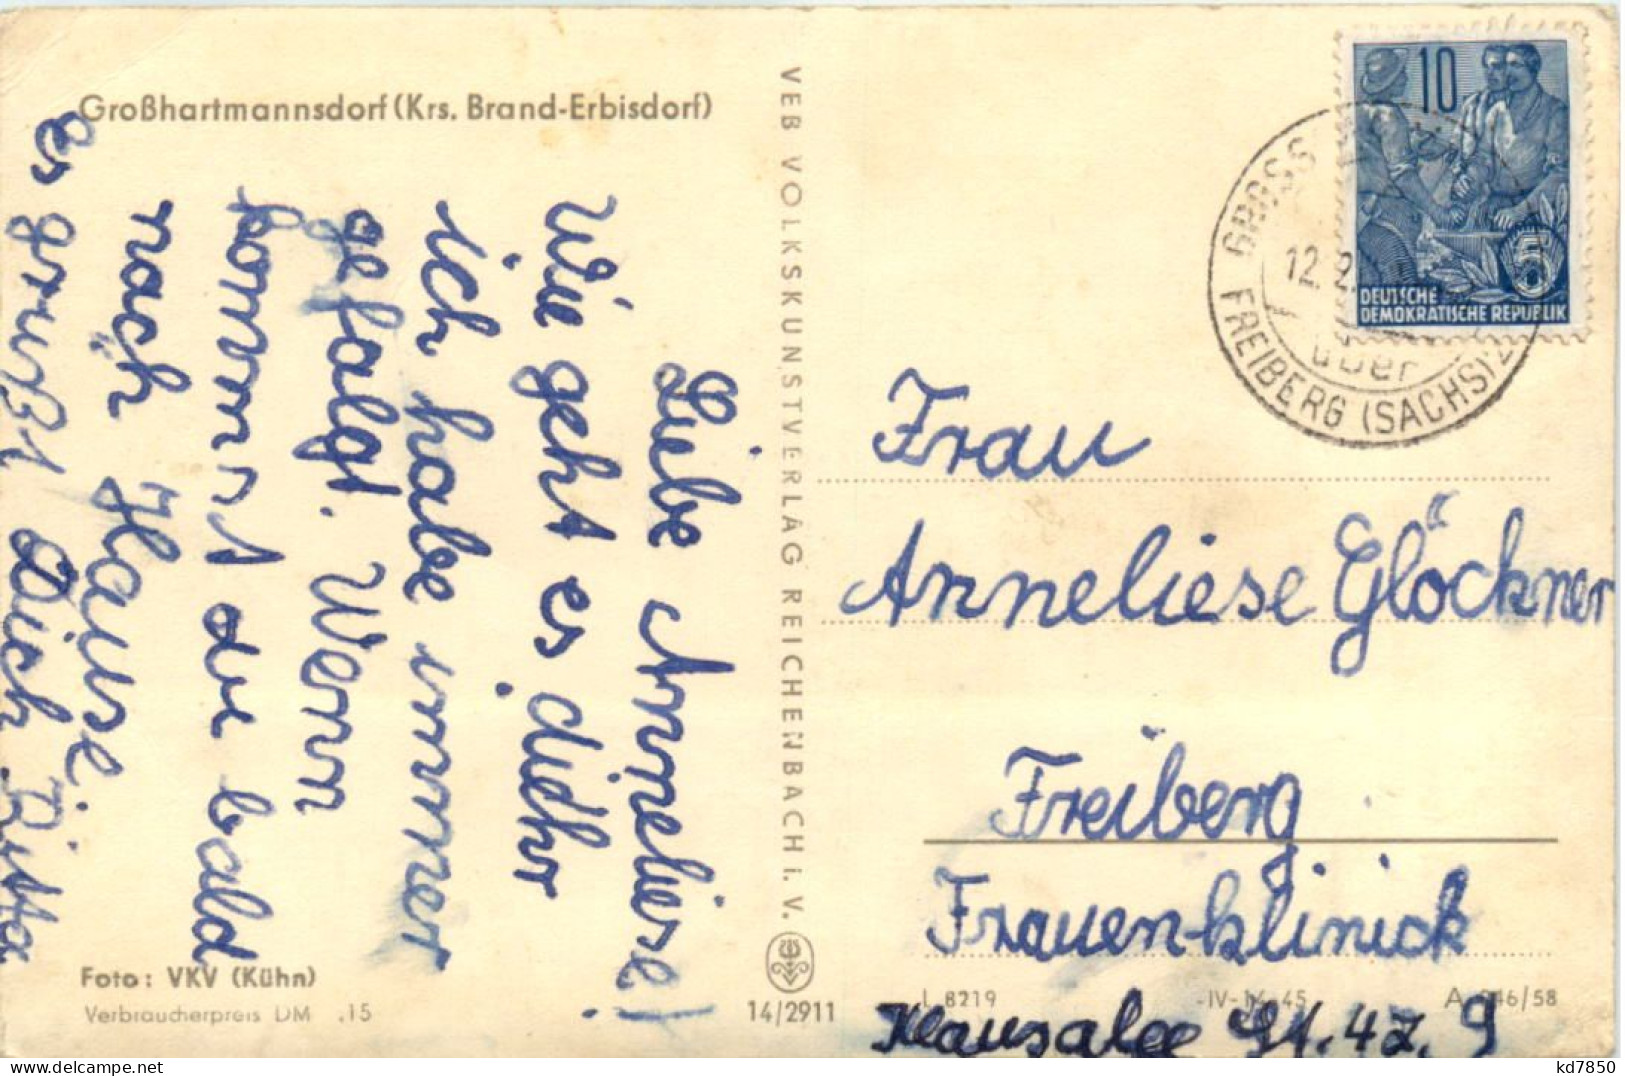 Großhartmannsdorf (Krs. Brand-Erbisdorf)
Liebe Anneliese!
Wie geht es diehr
ich habe immer
gefolgt. Wenn
kommst du bald
nach Hause.
es grußt Dich Ritta
Foto: VKV (Kühn)
Verbraucherpreis DM .15
VEB VOLKSKUNSTVERLAG REICHENBACH i. V.
14/2911
10
5
DEUTSCHE
DEMOKRATISCHE REPUBLIK
GROSS
12. 2.
über
FREIBERG (SACHS) 2
Frau
Anneliese Glöckner
Freiberg
Frauenklinick
L 8219 -IV-14-45 A 946/58
Klausalee St. 42. 9
kd7850